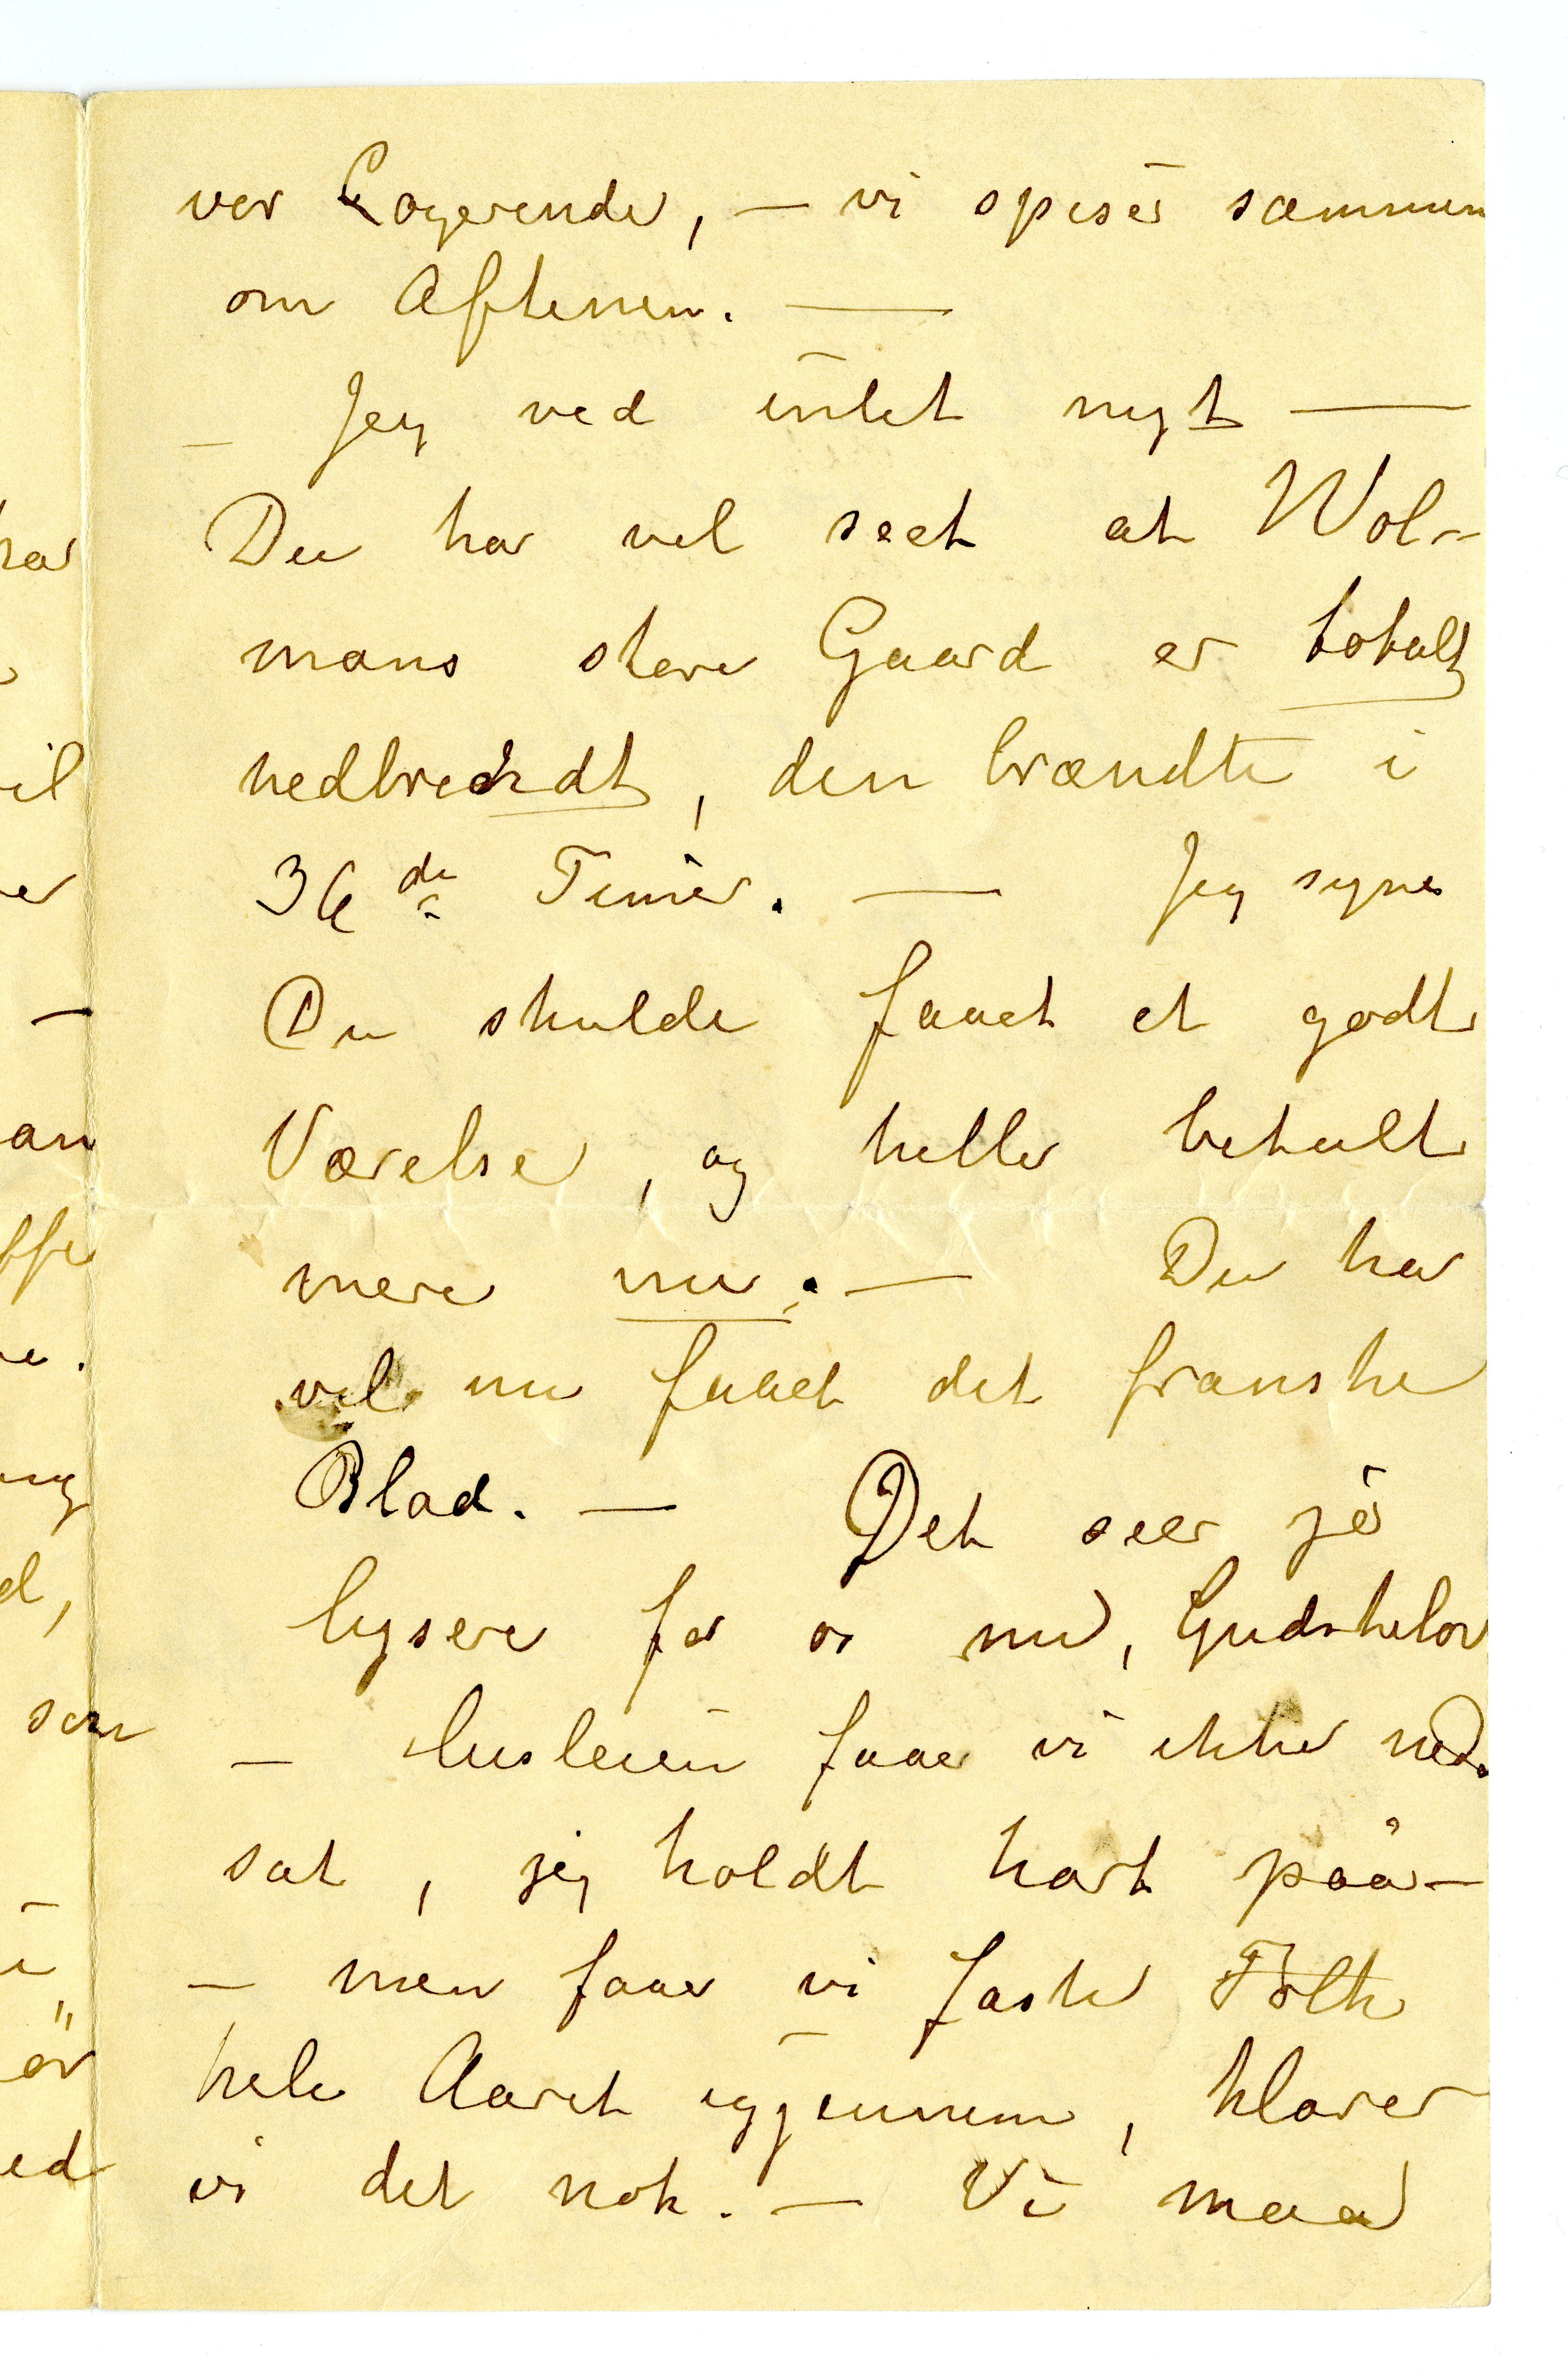 vor Logerende, — vi spiser sammen
om Aftenen. —
— Jeg ved intet nyt —
Du har vel seet at Wol-
mans store Gaard er totalt
nedbrændt, den brændte i
36 de Timer. — Jeg synes
Du skulde faaet et godt
Værelse, og heller betalt
mere nu. — Du har
vel nu faaet det franske
Blad. — Det seer jo
lysere for os nu, Gudskelov
— Husleien faaer vi ikke ned-
sat, jeg holdt hart paa —
— men faaer vi faste Folk
hele Aaret iggjennem, klarer
vi det nok. — Vi maa